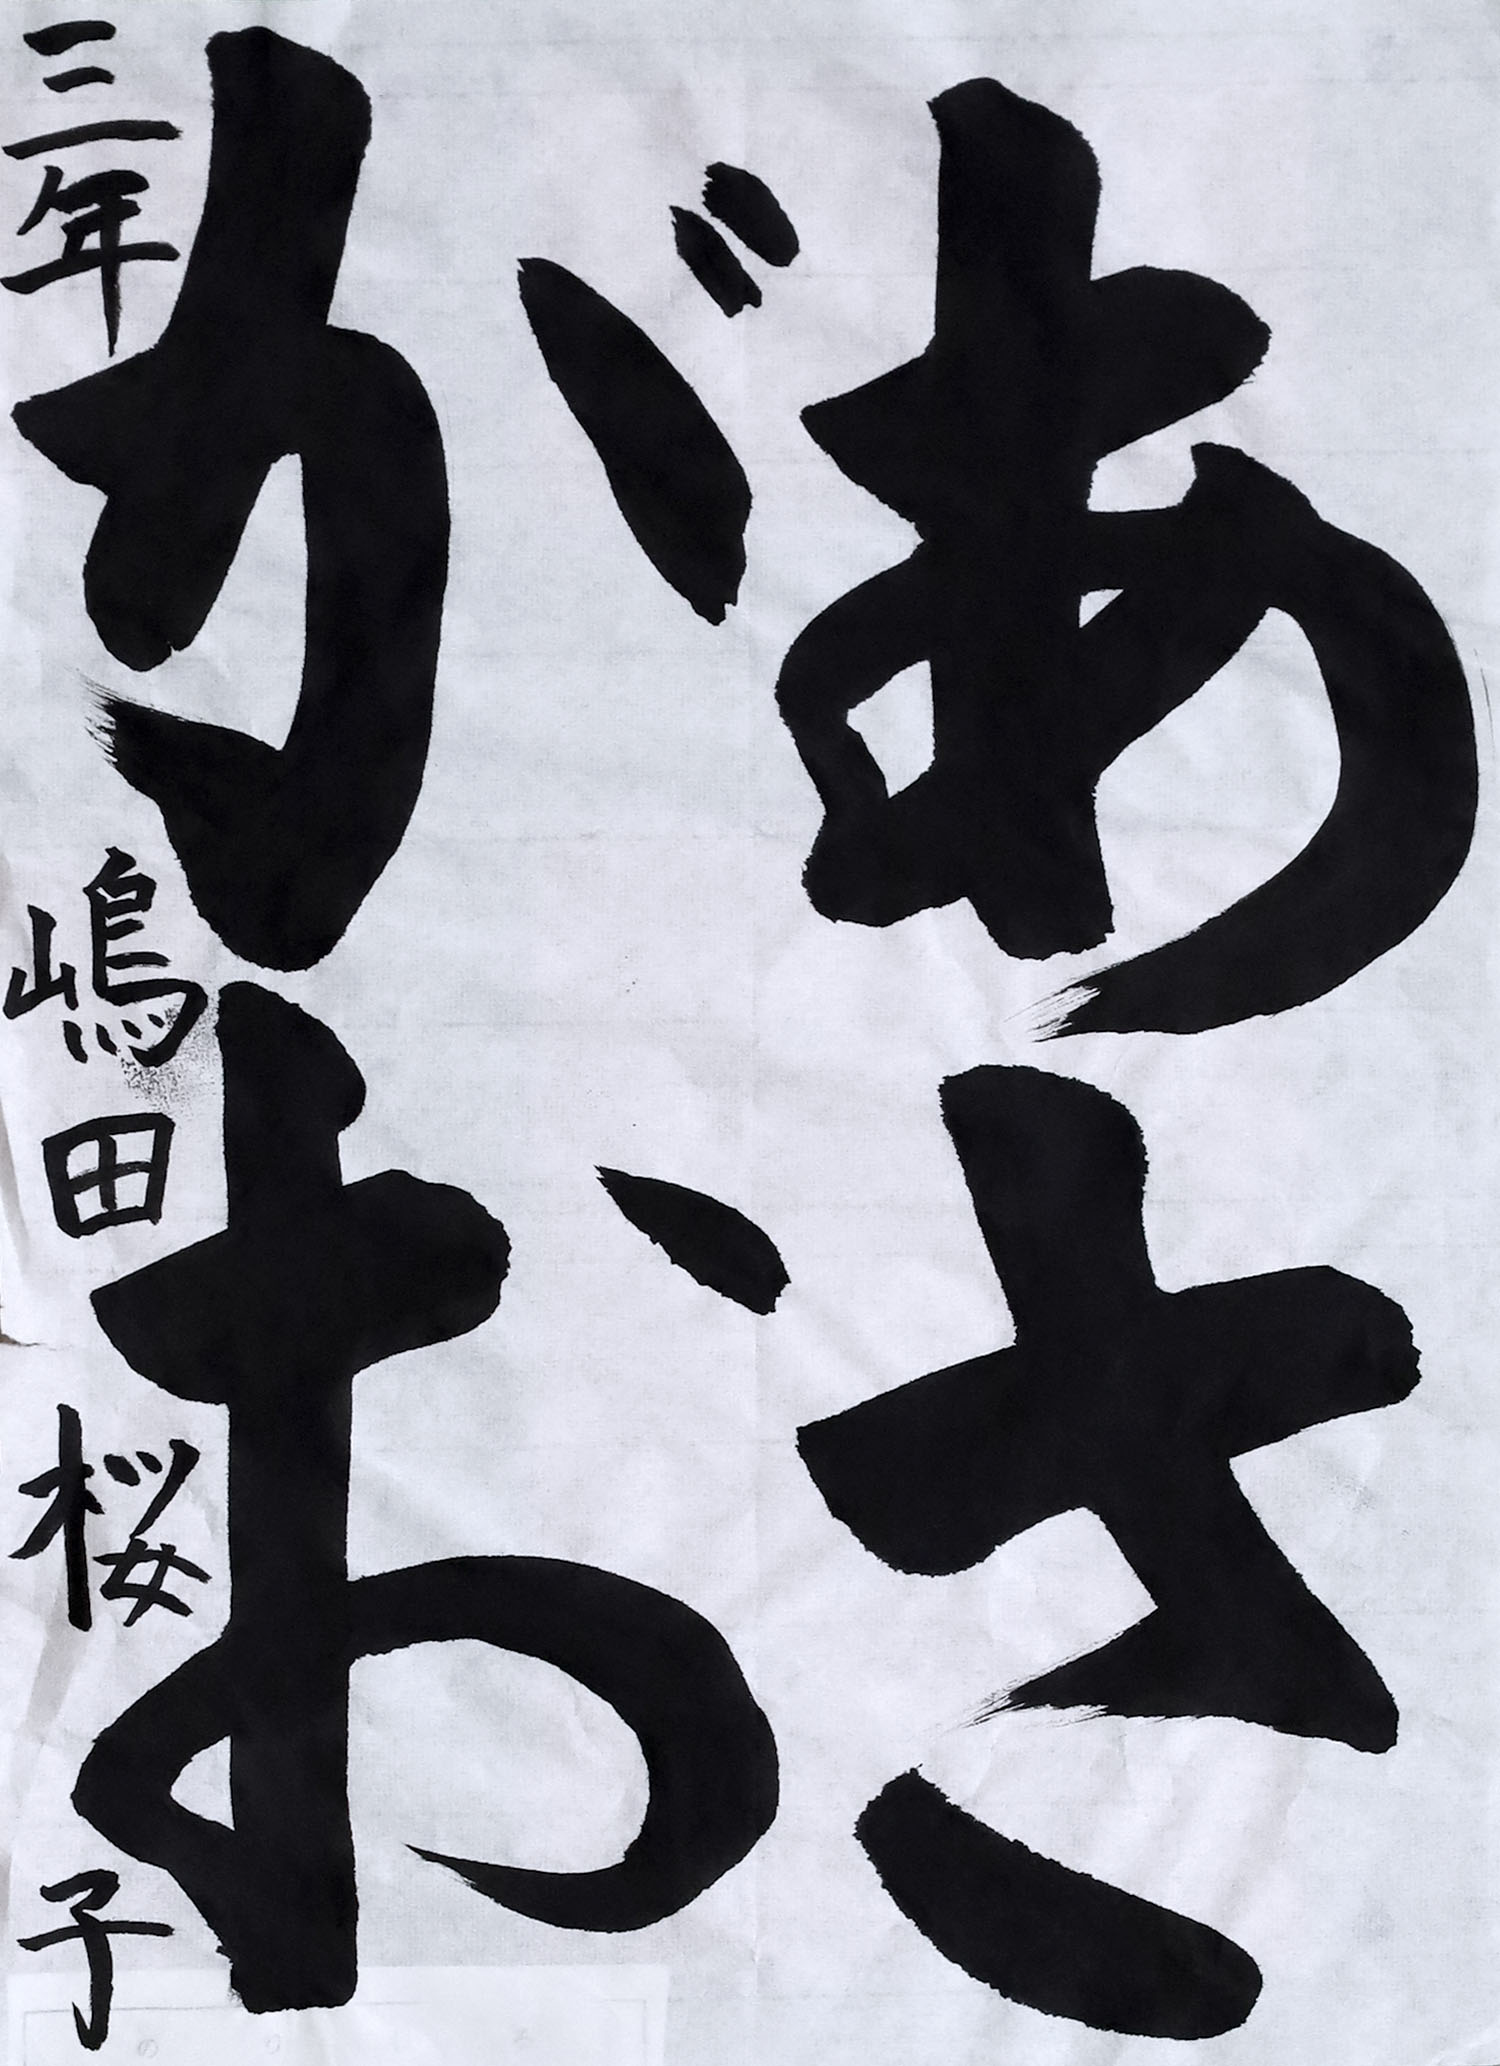 あさ
がお
三年 嶋田桜子